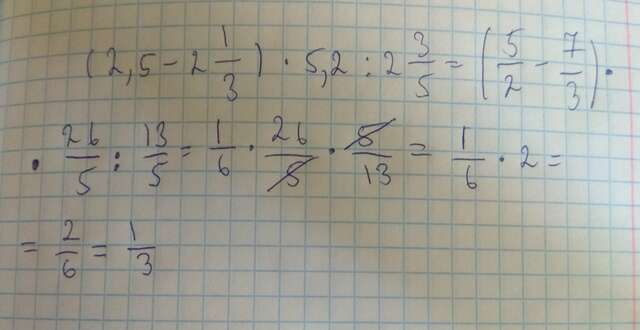 (2,5 - 2 1/3) · 5,2 : 2 3/5 = (5/2 - 7/3) ·
· 26/5 : 13/5 = 1/6 · 26/5 · 5/13 = 1/6 · 2 =
= 2/6 = 1/3